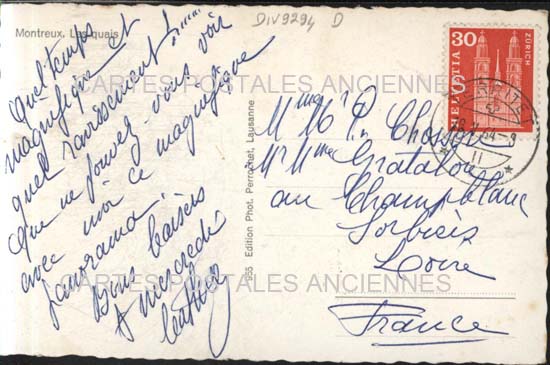 DIV9294 D
Montreux, Les quais
Quel temps
magnifique et
quel ravissement!
que ne pouvez-vous voir
avec moi ce magnifique
panorama.
Bons baisers
à mercredi
955 Edition Phot. Perrochet, Lausanne
CARTES POSTALES ANCIENNES
CARTES POSTALES ANCIENNES
30
HELVETIA
ZÜRICH
64-9
11
Mme
Mr Mme
Grataloup
au Champblanc
Sorbiers
Loire
France